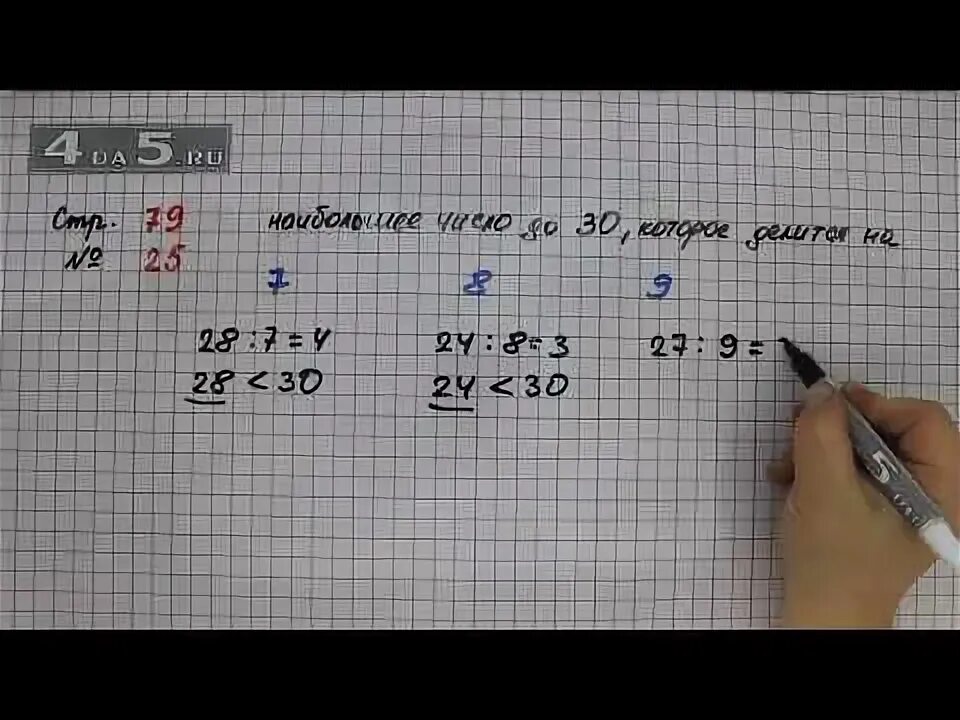 4DA5.RU
Стр. 79 наибольшее число до 30, которое делится на
№ 25
7 8 9
28 : 7 = 4 24 : 8 = 3 27 : 9 =
28 < 30 24 < 30